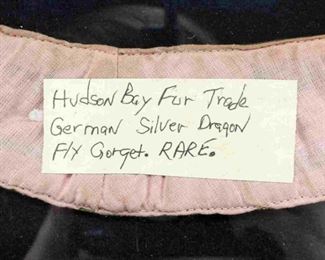 Hudson Bay Fur Trade
German Silver Dragon
Fly Gorget. RARE.